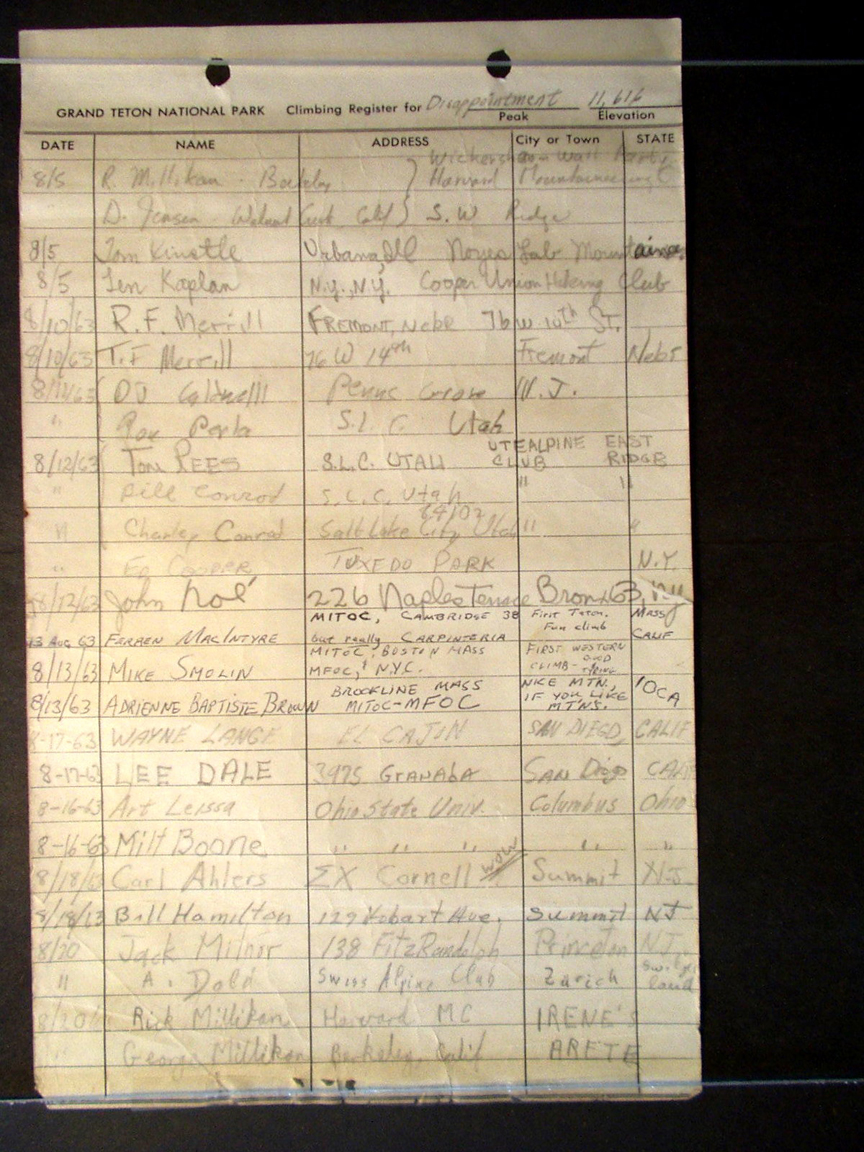 Disappointment 11,616
GRAND TETON NATIONAL PARK Climbing Register for Peak Elevation
DATE NAME ADDRESS City or Town STATE
Wickersham Wall Party
8/5 R. Millikan - Berkeley } Harvard Mountaineering C
" D. Jensen - Walnut Creek, Calif } S.W. Ridge
8/5 Tom Kinstle Urbana, Ill Noyes Lab Mountaineers
8/5 Len Kaplan N.Y., N.Y. Cooper Union Hiking Club
8/10/63 R.F. Merrill FREMONT, Nebr 76 W. 14th St.
8/10/63 T.F Merrill 76 W 14th Fremont Nebr
DJ Penns Grove N.J.
" S.L.C. Utah
UTE ALPINE EAST
8/12/63 TOM REES S.L.C. UTAH CLUB RIDGE
" Bill Conrod S.L.C. Utah " "
84102
" Charley Conrod Salt Lake City Utah " "
" Ed COOPER TUXEDO PARK N.Y.
8/12/63 John Noé 226 Naples Terrace Bronx 63, NY
MITOC, CAMBRIDGE 38 First Teton. MASS
Fun climb
13 AUG 63 FERREN MACINTYRE but really CARPINTERIA CALIF
MITOC, BOSTON MASS FIRST WESTERN
8/13/63 MIKE SMOLIN MFOC, & N.Y.C. CLIMB - GOOD
BROOKLINE MASS NICE MTN.
8/13/63 ADRIENNE BAPTISTE BROWN MITOC-MFOC IF YOU LIKE MTNS.
8-17-63 WAYNE LANGE EL CAJON SAN DIEGO, CALIF
8-17-63 LEE DALE 3975 GRANADA SAN Diego CALIF
8-16-63 Art Leissa Ohio State Univ. Columbus Ohio
8-16-63 Milt Boone " " " " "
8/18/63 Carl Ahlers ΣX Cornell WOW Summit N.J.
8/18/63 Bill Hamilton 129 Hobart Ave. Summit NJ
8/20 Jack Milnor 138 FitzRandolph Princeton NJ
" A. Dold Swiss Alpine Club Zurich Switzerland
8/20/63 Rick Millikan Harvard MC IRENE'S
" George Millikan Berkeley, Calif ARETE